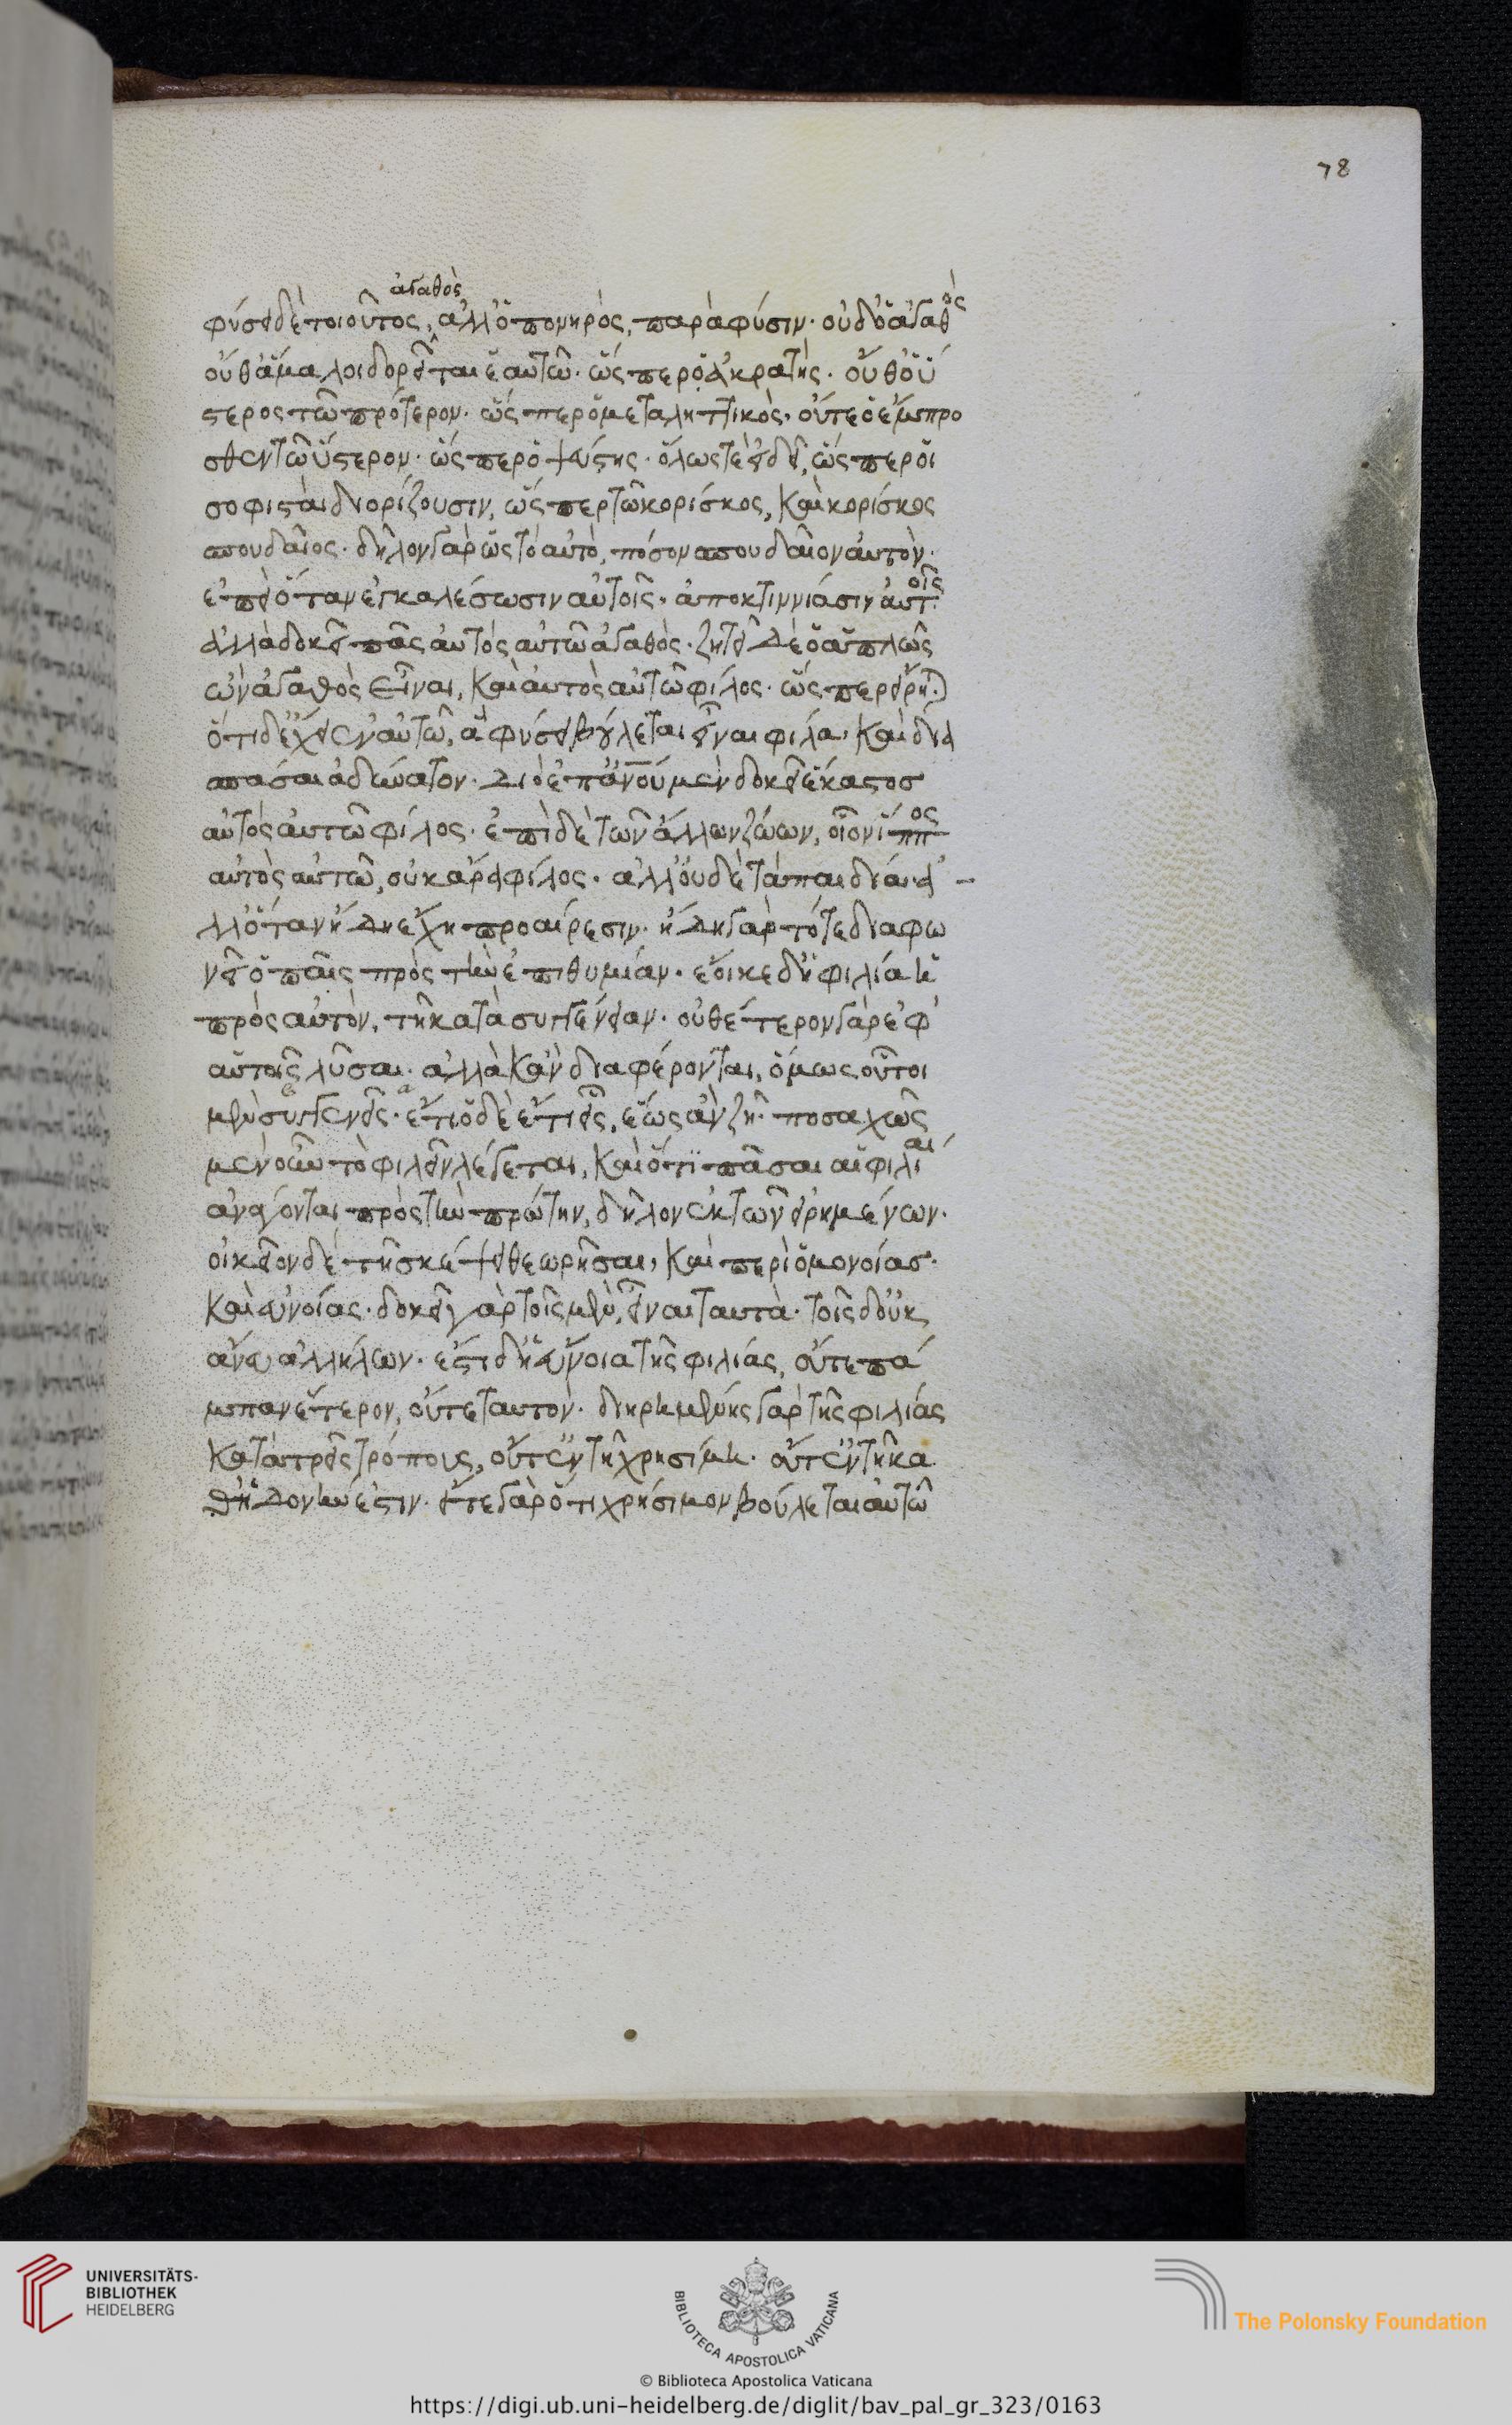 78
ἀγαθὸς
φύσει δὲ τοιοῦτος, ἀλλ' ὁ πονηρὸς, παρὰ φύσιν· οὐδ' ὁ ἀγαθὸς
οὔθ' ἅμα λοιδορεῖται ἑαυτῶ· ὥς περ ὁ ἀκρατὴς· οὔθ' ὁ ὕ
στερος τῶ πρότερον· ὥς περ ὁ μεταλητικὸς· οὔτε ὁ ἔμπρο
σθεν τῶ ὕστερον· ὥς περ ὁ ψεύστης· ὅλως τε εἰ δεῖ, ὥς περ οἱ
σοφισταὶ διορίζουσιν, ὥς περ τῶ κορίσκος, καὶ κορίσκος
σπουδαῖος· δῆλον γὰρ ὡς τὸ αὐτὸ, πόσον σπουδαῖον αὐτὸν·
ἐπεὶ ὅταν ἐγκαλέσωσιν αὑτοῖς· ἀποκτιννύασιν αὑτοῖς
ἀλλὰ δοκεῖ πᾶς αὐτὸς αὑτῶ ἀγαθὸς· ζητεῖ δὲ ὁ ἁπλῶς
ὢν ἀγαθὸς εἶναι, καὶ αὐτὸς αὑτῶ φίλος· ὥς περ εἴρη·
ὅτι δύ' ἔχει ἐν αὑτῶ, ἃ φύσει βούλεται εἶναι φίλα· καὶ δια
σπάσαι ἀδύνατον· διὸ ἐπ' ἀνοῦ μὲν δοκεῖ ἕκαστοσ
αὐτὸς αὑτῶ φίλος· ἐπὶ δὲ τῶν ἄλλων ζώων, οἷον ἵππος
αὐτὸς αὑτῶ, οὐκ ἄρα φίλος· ἀλλ' οὐδὲ τὰ παιδία· ἀ
λλ' ὅταν ἤδη ἔχη προαίρεσιν· ἤδη γὰρ τότε διαφω
νεῖ ὁ παῖς πρὸς τὴν ἐπιθυμίαν· ἔοικε δ' ἡ φιλία ἡ
πρὸς αὑτὸν, τῆ κατὰ συγγένειαν· οὐθέτερον γὰρ ἐφ'
αὑτοῖς λῦσαι· ἀλλὰ κἂν διαφέρονται, ὅμως οὗτοι
μὲν συγγενεῖς· ἔτι ὁ δὲ ἔτι εἷς, ἕως ἂν ζῆ· ποσαχῶς
μὲν οὖν τὸ φιλεῖν λέγεται, καὶ ὅτι πᾶσαι αἱ φιλίαι
ἀνάγονται πρὸς τὴν πρώτην, δῆλον ἐκ τῶν εἰρημένων·
οἰκεῖον δὲ τῆ σκέψει θεωρῆσαι, καὶ περὶ ὁμονοίασ·
καὶ εὐνοίας· δοκεῖ γὰρ τοῖς μὲν, εἶναι ταυτὰ· τοῖς δ' οὐκ
ἄνευ ἀλλήλων· ἔστι δ' ἡ εὔνοια τῆς φιλίας, οὔτε πά
μπαν ἕτερον, οὔτε ταυτὸν· διηρημένης γὰρ τῆς φιλίας
κατὰ τρεῖς τρόπους, οὔτ' ἐν τῆ χρησίμη· οὔτ' ἐν τῆ κα
θ' ἡδονὴν ἐστιν· εἴτε γὰρ ὅτι χρήσιμον βούλεται αὐτῶ
UNIVERSITÄTS-
BIBLIOTHEK
HEIDELBERG
BIBLIOTECA APOSTOLICA VATICANA
The Polonsky Foundation
© Biblioteca Apostolica Vaticana
https://digi.ub.uni-heidelberg.de/diglit/bav_pal_gr_323/0163